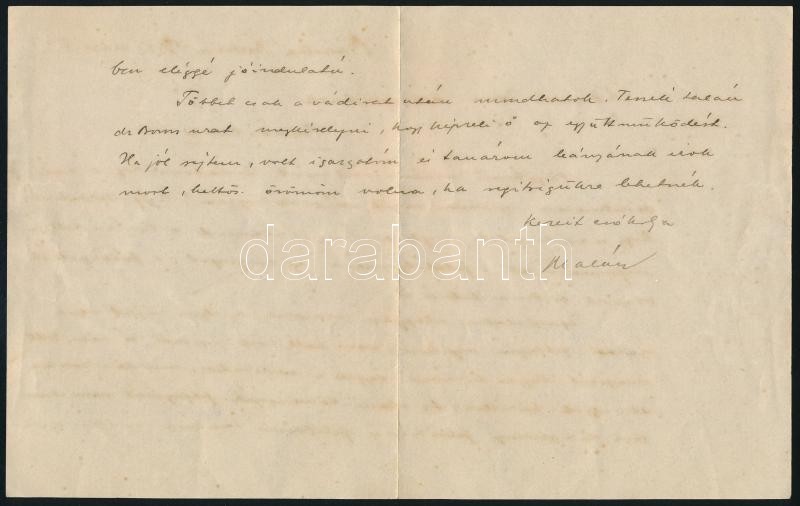 ben eléggé jóindulatú.
Többet csak a vádirat után mondhatok. Tessék talán
dr Boros urat megkérdezni, hogy képzeli ő az együttműködést.
Ha jól sejtem, volt igazgatóm és tanárom leányának írok
most, kettős örömöm volna, ha segítségükre lehetnék.
Kezeit csókolja
darabanth